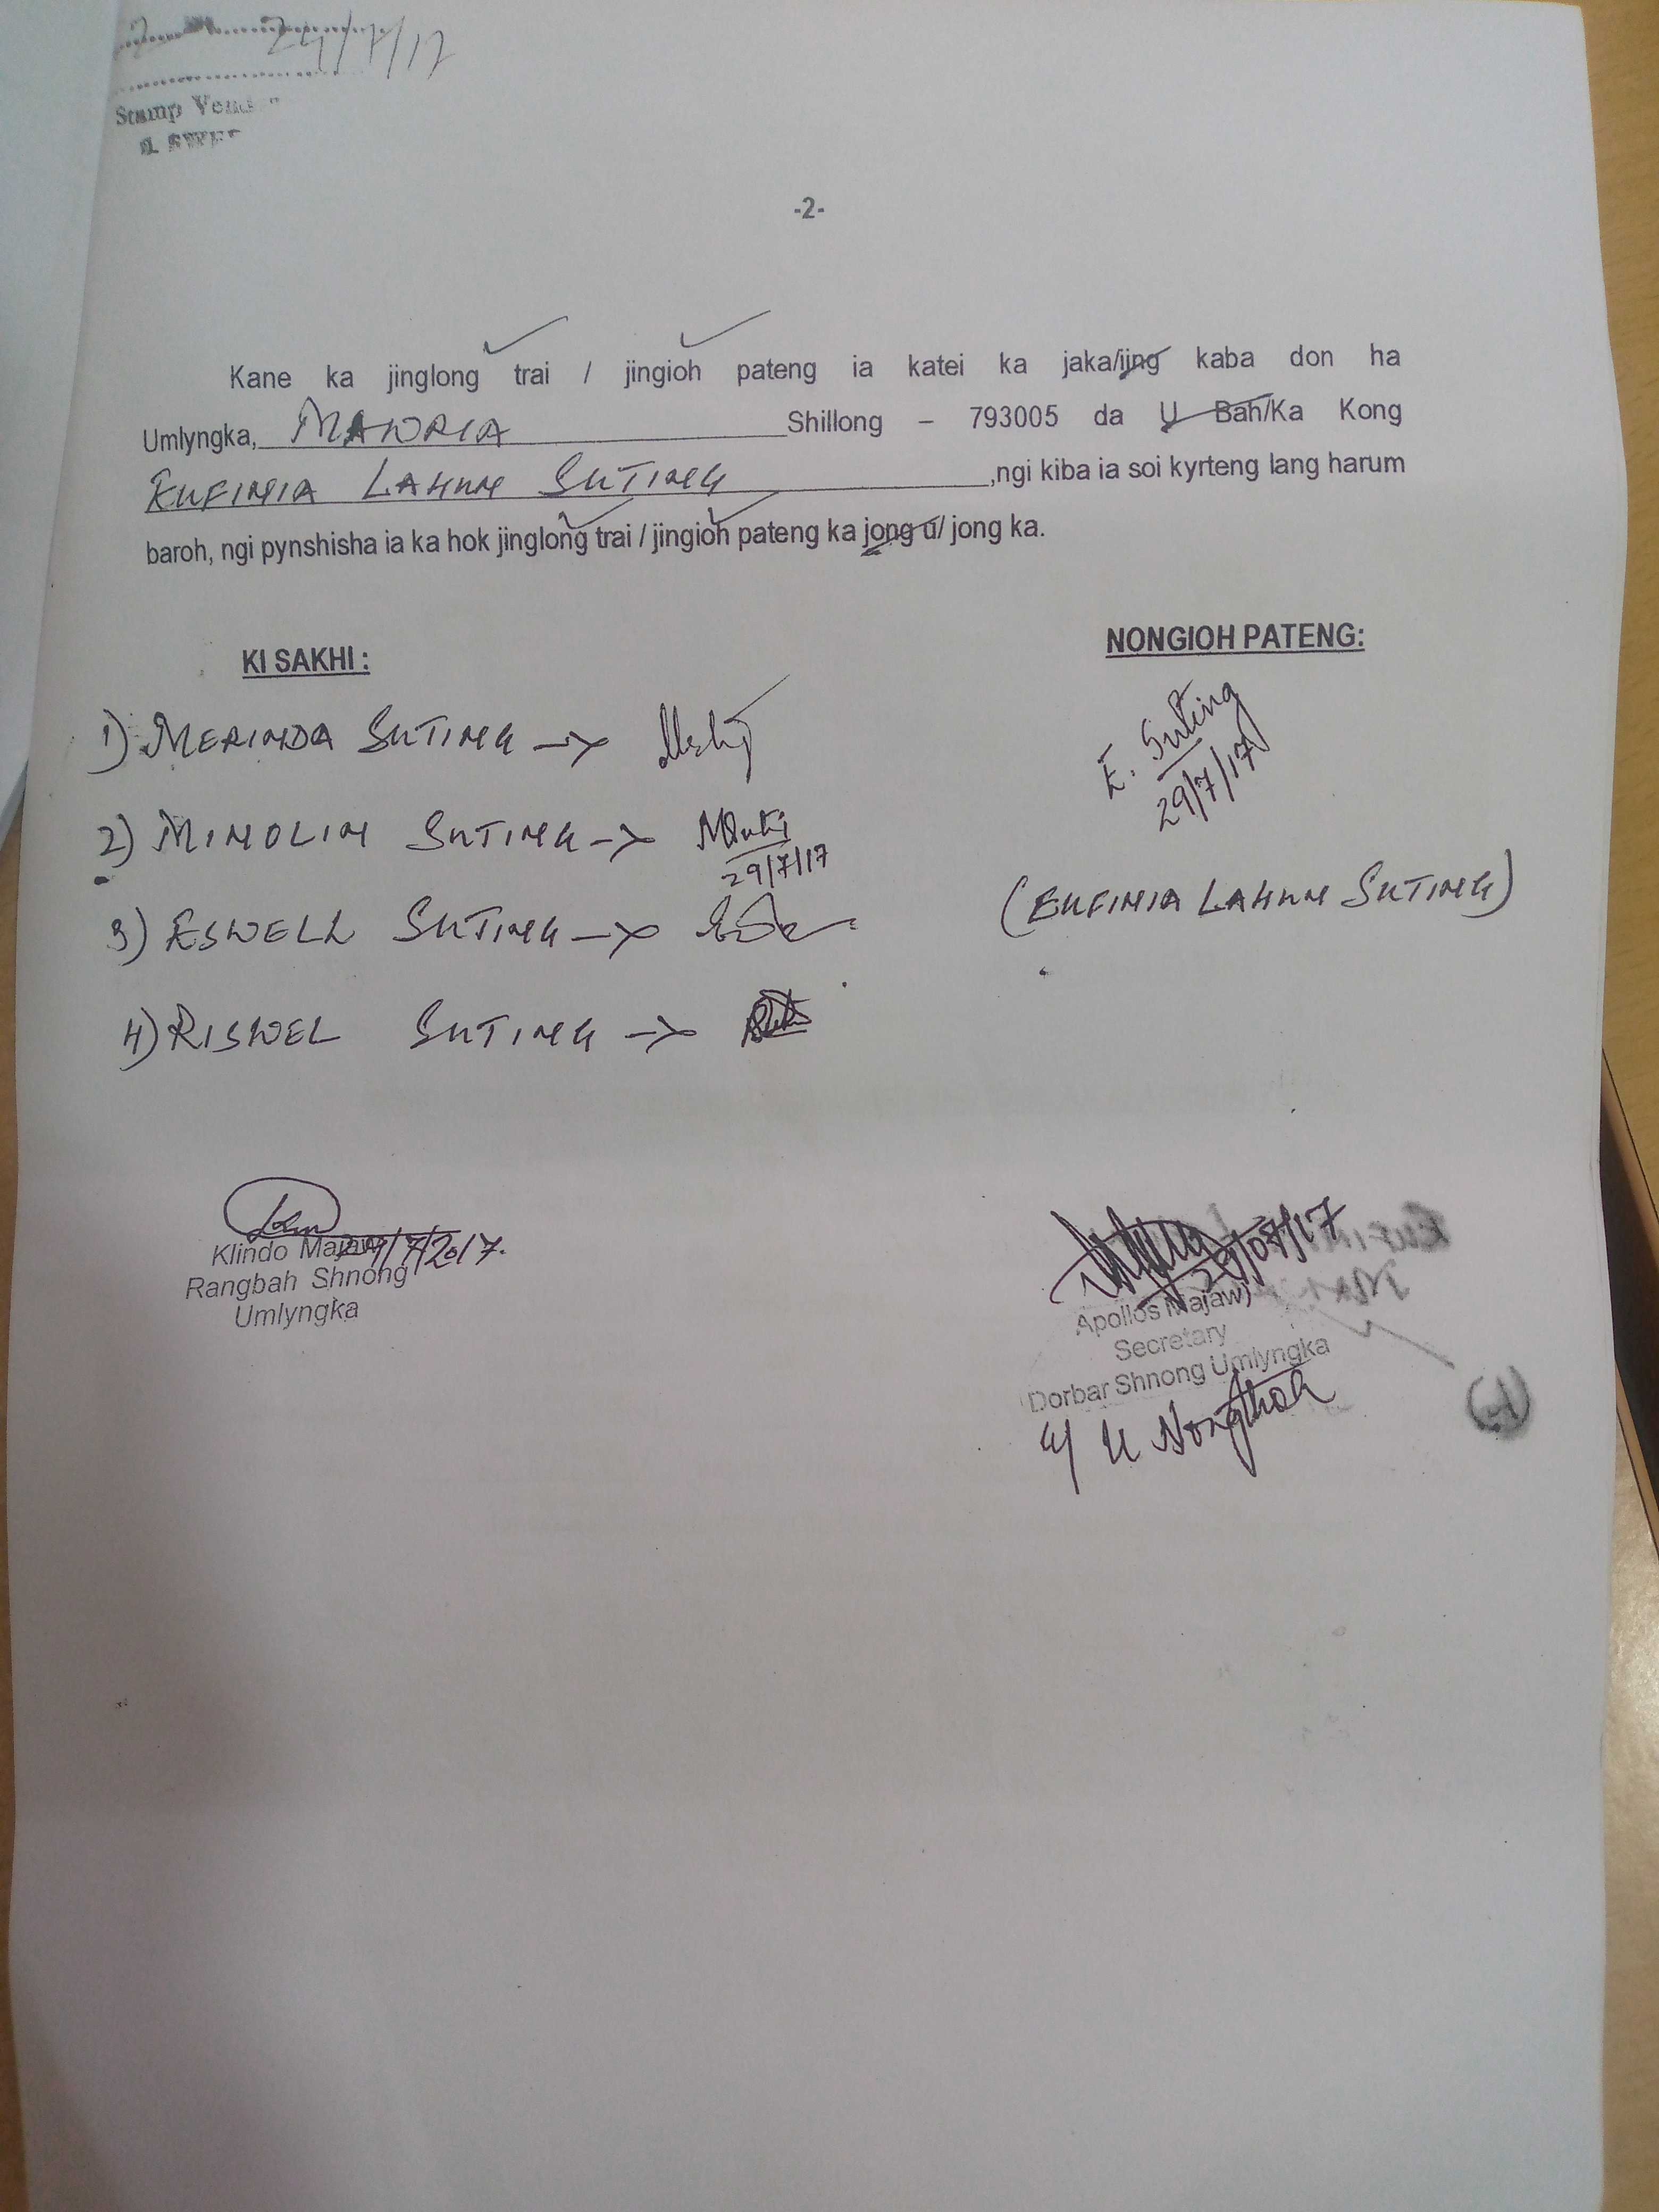 24/7/17
Stamp
-2-
Kane ka jinglong trai / jingioh pateng ia katei ka jaka/iing kaba don ha
Umlyngka, MAWRIA Shillong – 793005 da U Bah/Ka Kong
EUFINIA LAHUN SUTING ,ngi kiba ia soi kyrteng lang harum
baroh, ngi pynshisha ia ka hok jinglong trai / jingioh pateng ka jong u/ jong ka.
KI SAKHI :
NONGIOH PATENG:
1) MERINDA SUTING →
E. Suting
29/7/17
2) MINOLIN SUTING →
29/7/17
(EUFINIA LAHUN SUTING)
3) ESWELL SUTING →
4) RISWEL SUTING →
Klindo Majaw 29/7/2017.
Rangbah Shnong
Umlyngka
29/07/17
Apollos Majaw)
Secretary
Dorbar Shnong Umlyngka